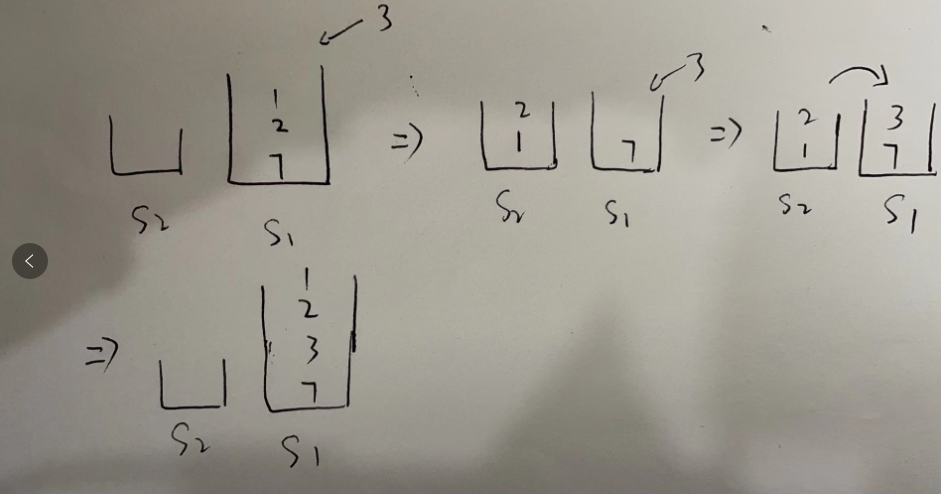 3
1
2
7
S2
S1
=>
3
2
1
7
S2
S1
=>
2
1
3
7
S2
S1
=>
1
2
3
7
S2
S1